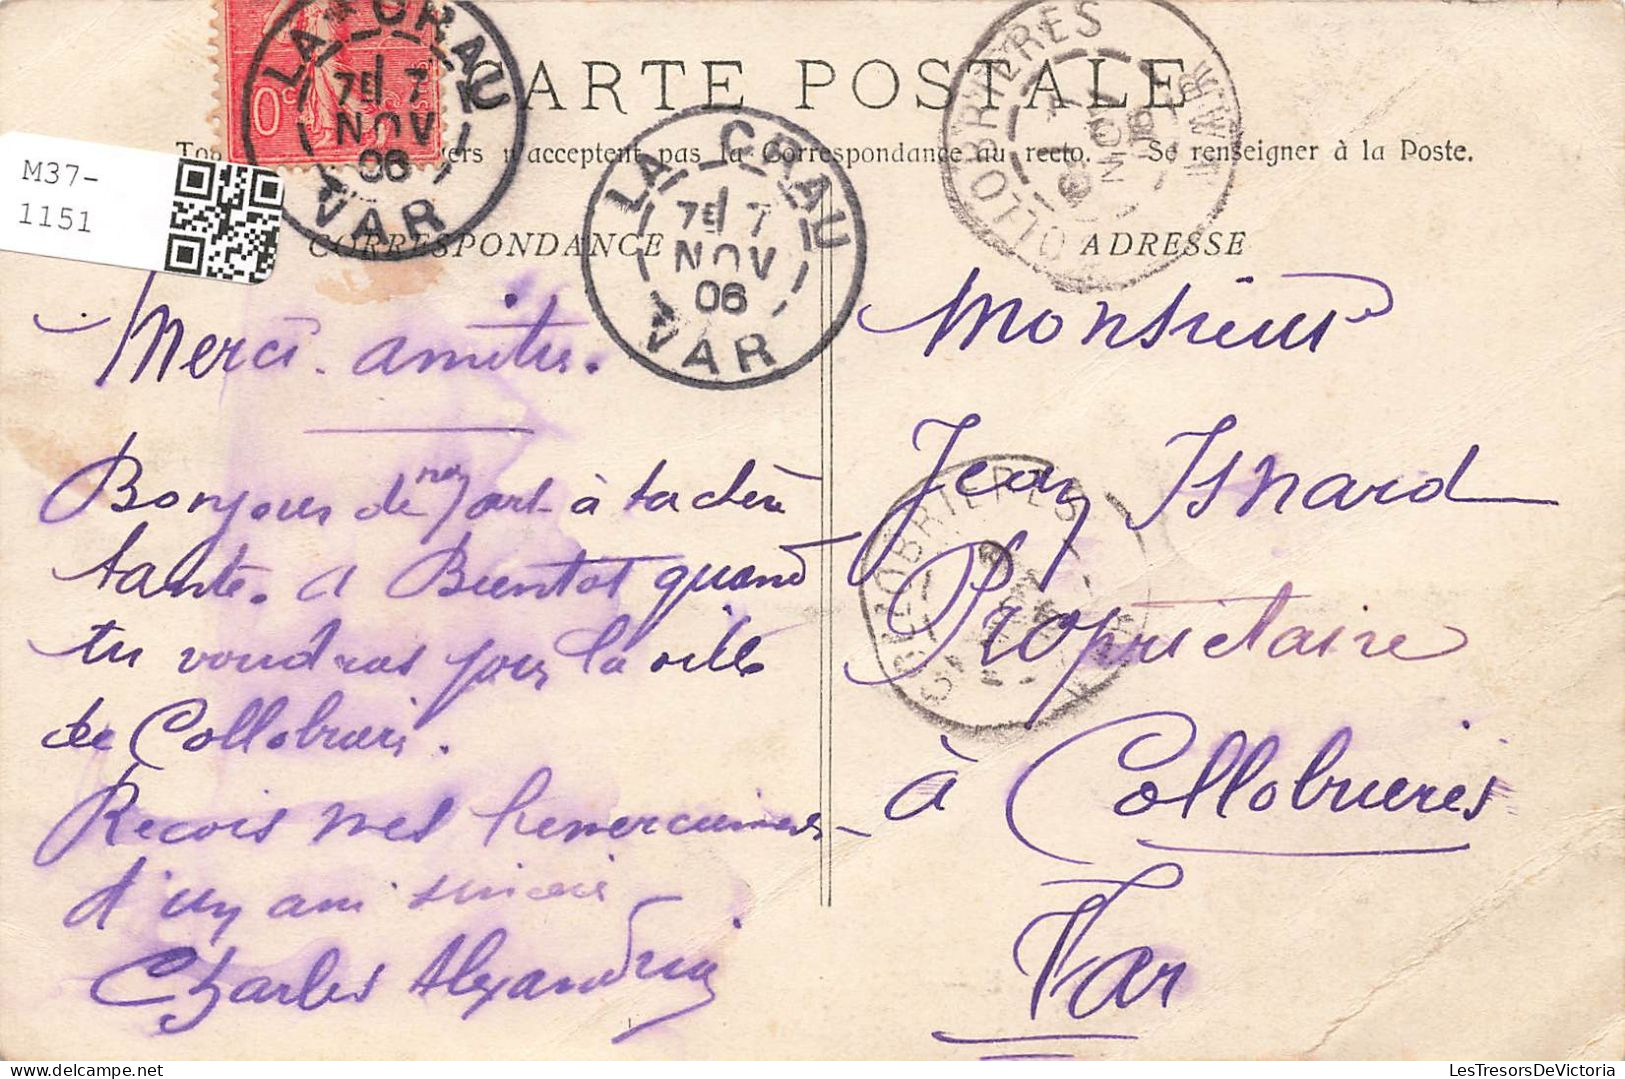 CARTE POSTALE
Tou vers n'acceptent pas la Correspondance au recto. - Se renseigner à la Poste.
M37-
1151
CORRESPONDANCE
ADRESSE
LA CRAU
7E 7
NOV
06
VAR
LA CRAU
7E 7
NOV
06
VAR
COLLOBRIÈRES
NOV
VAR
COLLOBRIÈRES
Merci. amitiés.
Bonjour de ma part à ta chère
tante. à Bientot quand
tu voudras pour la ville
de Collobrieres.
Recois mes remerciements
d'un ami sincère
Charles Alexandrin
Monsieur
Jean Isnard
Propriétaire
à Collobrieres
Var
LesTresorsDeVictoria